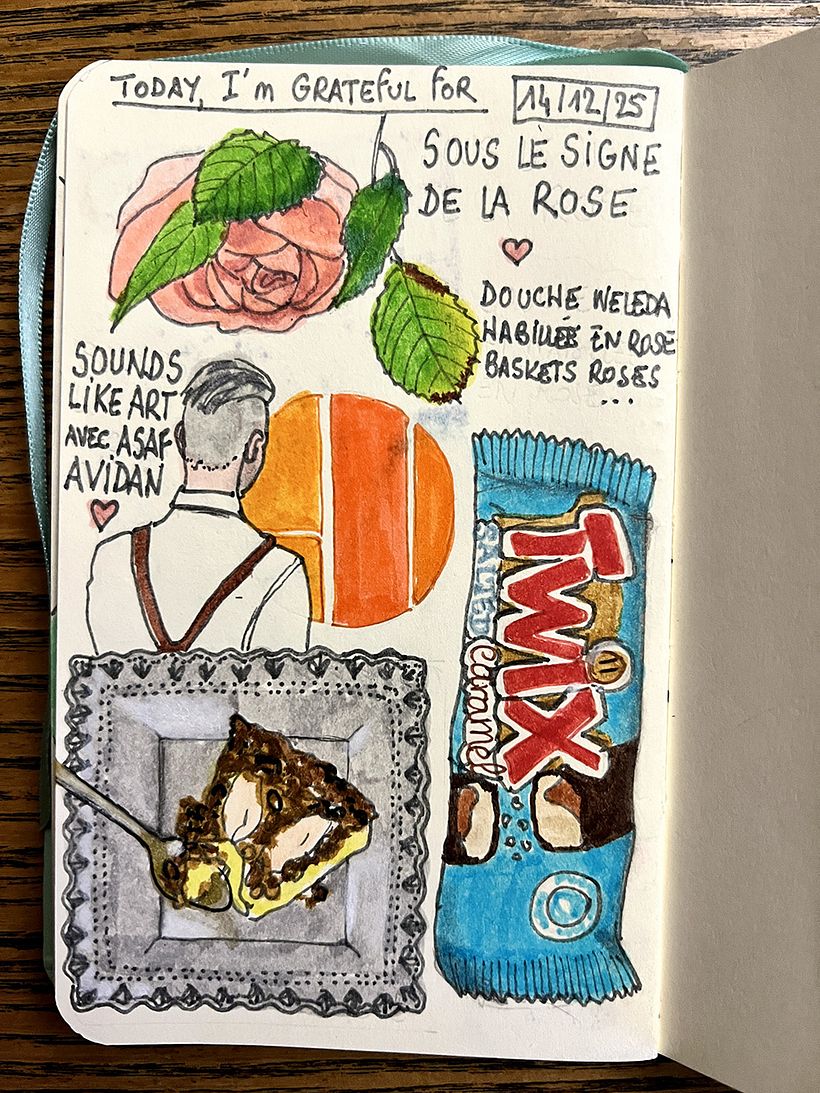 TODAY, I'm GRATEFUL FOR
14/12/25
SOUS LE SIGNE
DE LA ROSE
DOUCHE WELEDA
HABILLÉE EN ROSE
BASKETS ROSES
...
SOUNDS
LIKE ART
AVEC ASAF
AVIDAN
TWIX
SALTED
caramel